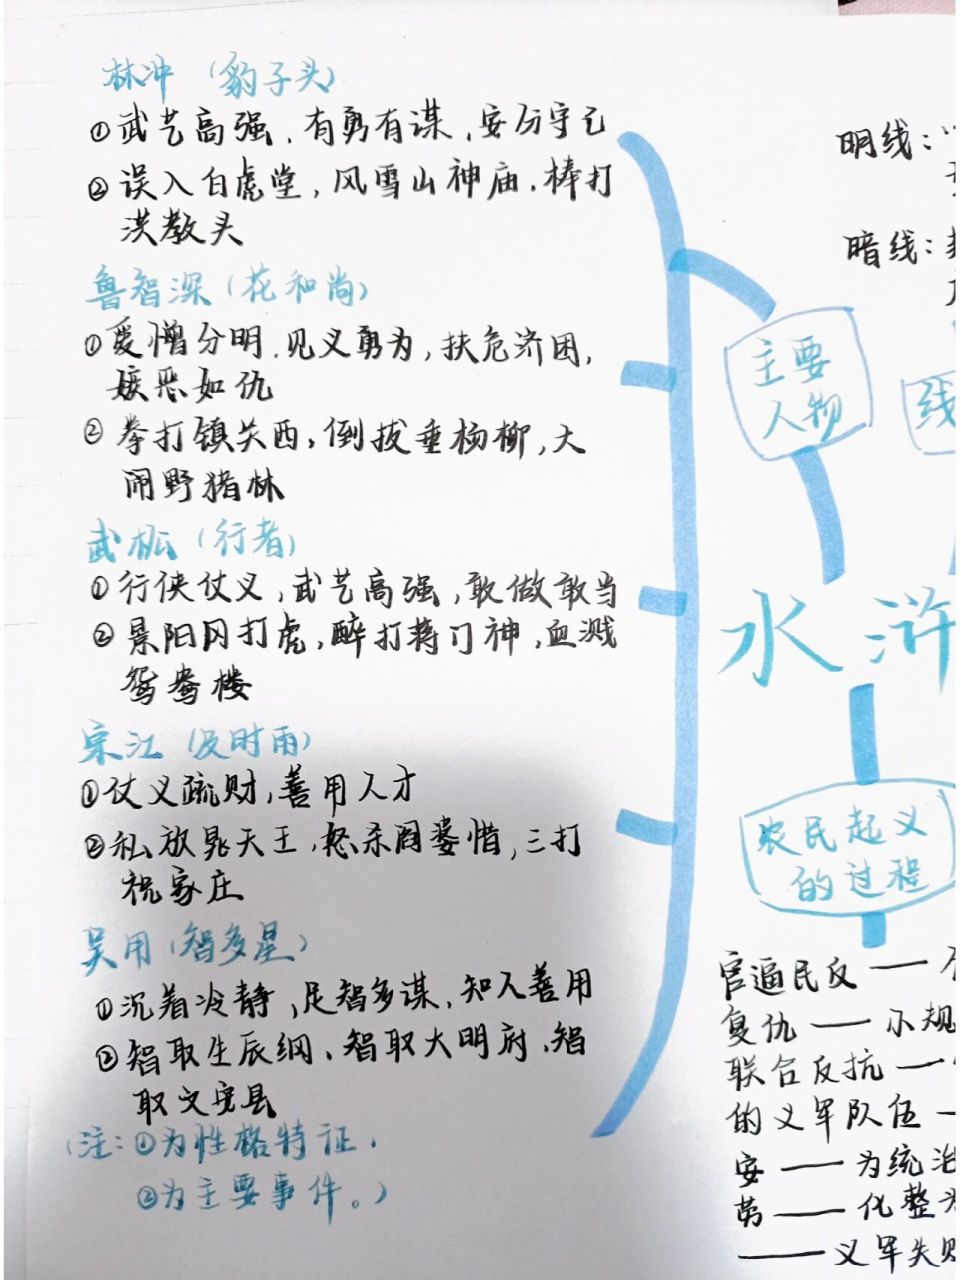 林冲（豹子头）
①武艺高强，有勇有谋，安分守己
②误入白虎堂，风雪山神庙，棒打
洪教头
鲁智深（花和尚）
①爱憎分明，见义勇为，扶危济困，
嫉恶如仇
②拳打镇关西，倒拔垂杨柳，大
闹野猪林
武松（行者）
①行侠仗义，武艺高强，敢做敢当
②景阳冈打虎，醉打蒋门神，血溅
鸳鸯楼
宋江（及时雨）
①仗义疏财，善用人才
②私放晁天王，怒杀阎婆惜，三打
祝家庄
吴用（智多星）
①沉着冷静，足智多谋，知人善用
②智取生辰纲、智取大明府、智
取文安县
（注：①为性格特征，
②为主要事件。）
明线：
暗线：
主要
人物
线
水浒
农民起义
的过程
官逼民反——
复仇——小规
联合反抗——
的义军队伍—
安——为统治
劳——化整为
——义军失败